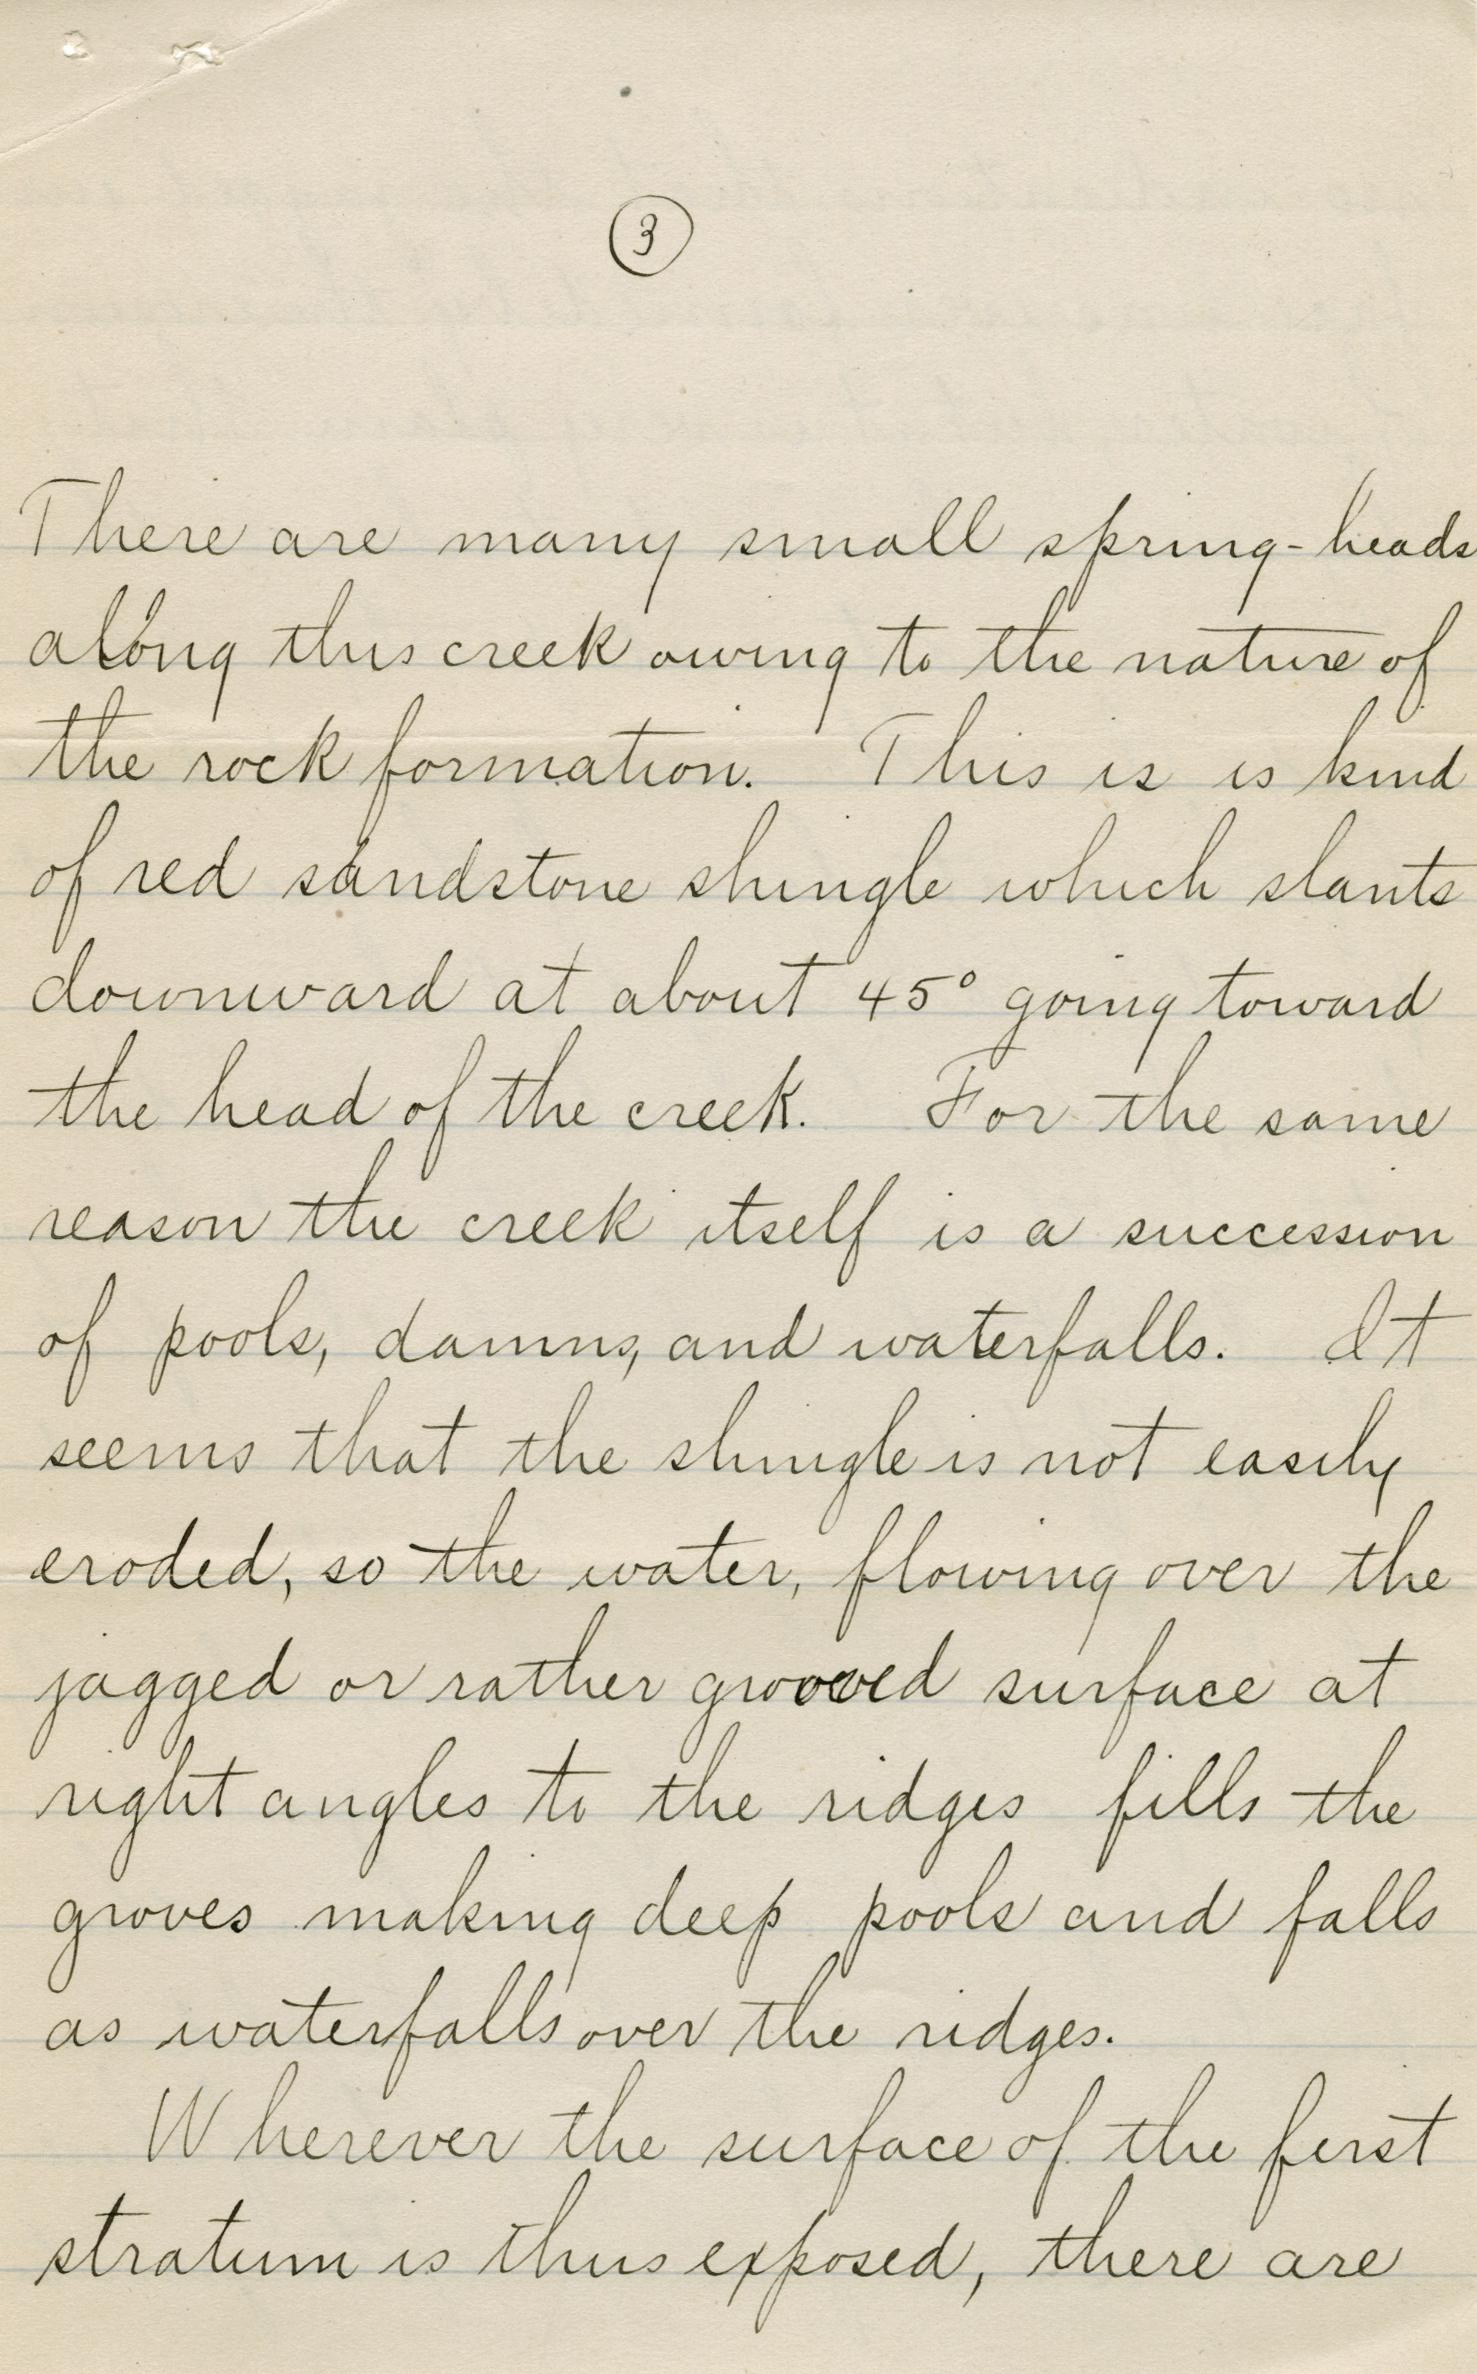 3
There are many small spring-heads
along this creek owing to the nature of
the rock formation. This is is kind
of red sandstone shingle which slants
downward at about 45° going toward
the head of the creek. For the same
reason the creek itself is a succession
of pools, damns, and waterfalls. It
seems that the shingle is not easily
eroded, so the water, flowing over the
jagged or rather grooved surface at
right angles to the ridges fills the
groves making deep pools and falls
as waterfalls over the ridges.
Wherever the surface of the first
stratum is thus exposed, there are